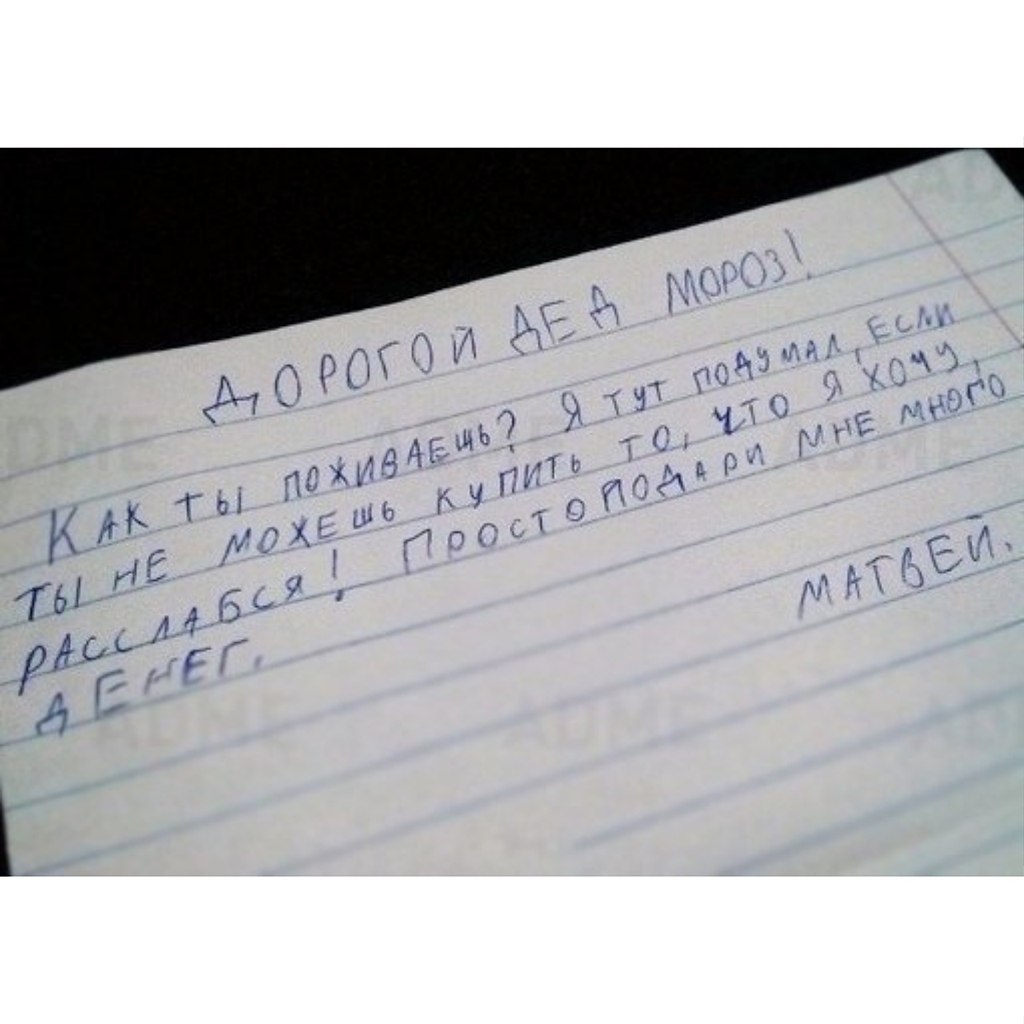 ДОРОГОЙ ДЕД МОРОЗ!
КАК ТЫ ПОЖИВАЕШЬ? Я ТУТ ПОДУМАЛ, ЕСЛИ
ТЫ НЕ МОЖЕШЬ КУПИТЬ ТО, ЧТО Я ХОЧУ,
РАССЛАБСЯ! ПРОСТО ПОДАРИ МНЕ МНОГО
ДЕНЕГ.
МАТВЕЙ.
ADME
ADME
ADME
ADME
ADME